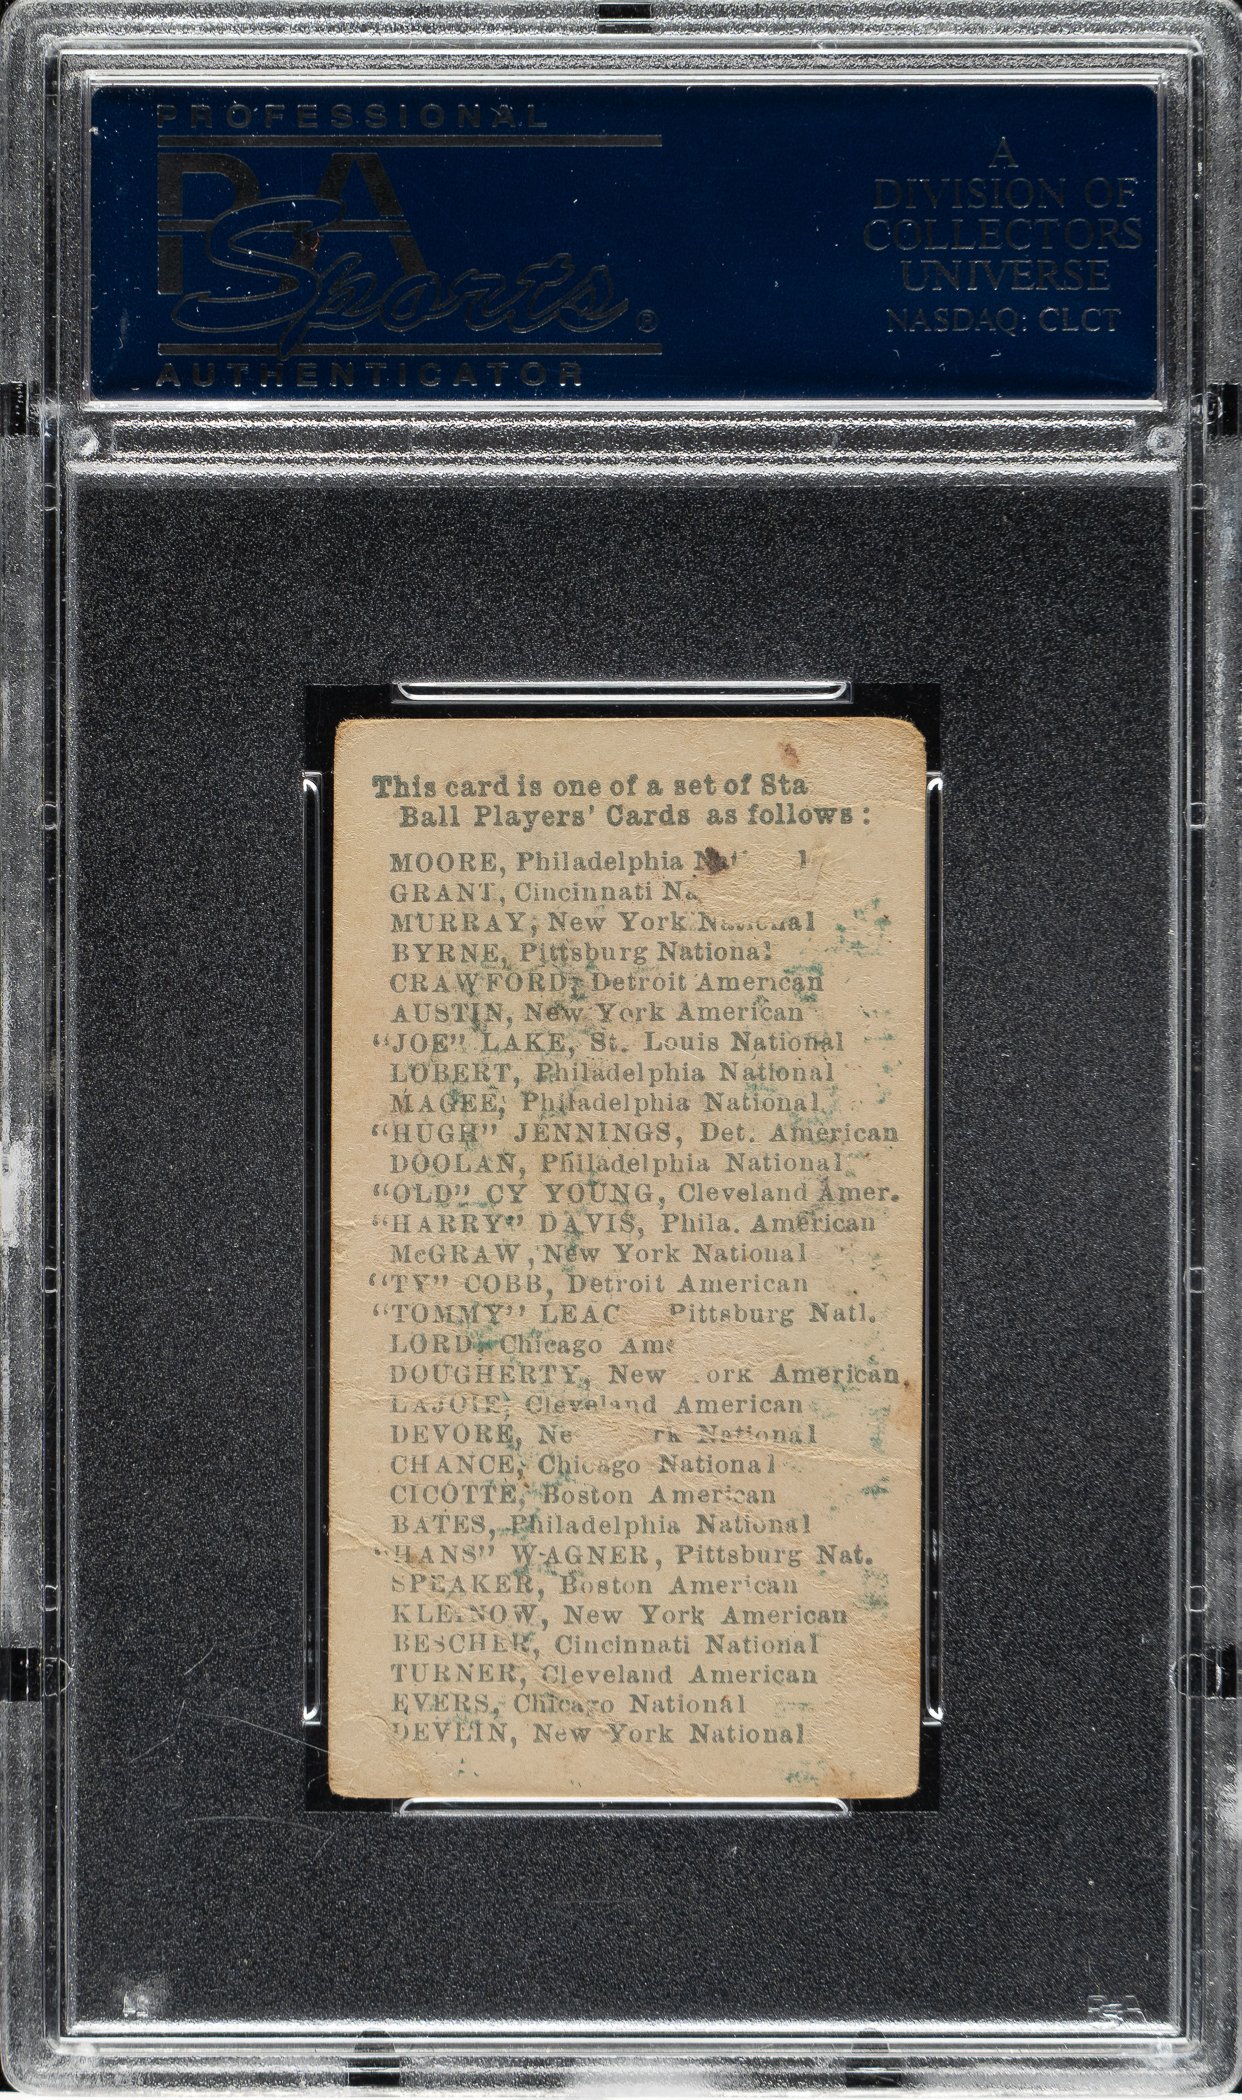 PROFESSIONAL
PSA
Sports®
AUTHENTICATOR
A
DIVISION OF
COLLECTORS
UNIVERSE
NASDAQ: CLCT
This card is one of a set of Sta
Ball Players' Cards as follows:
MOORE, Philadelphia
GRANT, Cincinnati
MURRAY, New York National
BYRNE, Pittsburg National
CRAWFORD, Detroit American
AUSTIN, New York American
"JOE" LAKE, St. Louis National
LOBERT, Philadelphia National
MAGEE, Philadelphia National
"HUGH" JENNINGS, Det. American
DOOLAN, Philadelphia National
"OLD" CY YOUNG, Cleveland Amer.
"HARRY" DAVIS, Phila. American
McGRAW, New York National
"TY" COBB, Detroit American
"TOMMY" LEAC Pittsburg Natl.
LORD, Chicago Ame
DOUGHERTY, New ork American
LAJOIE, Cleveland American
DEVORE, Ne rk National
CHANCE, Chicago National
CICOTTE, Boston American
BATES, Philadelphia National
"HANS" WAGNER, Pittsburg Nat.
SPEAKER, Boston American
KLEINOW, New York American
BESCHER, Cincinnati National
TURNER, Cleveland American
EVERS, Chicago National
DEVLIN, New York National
PSA